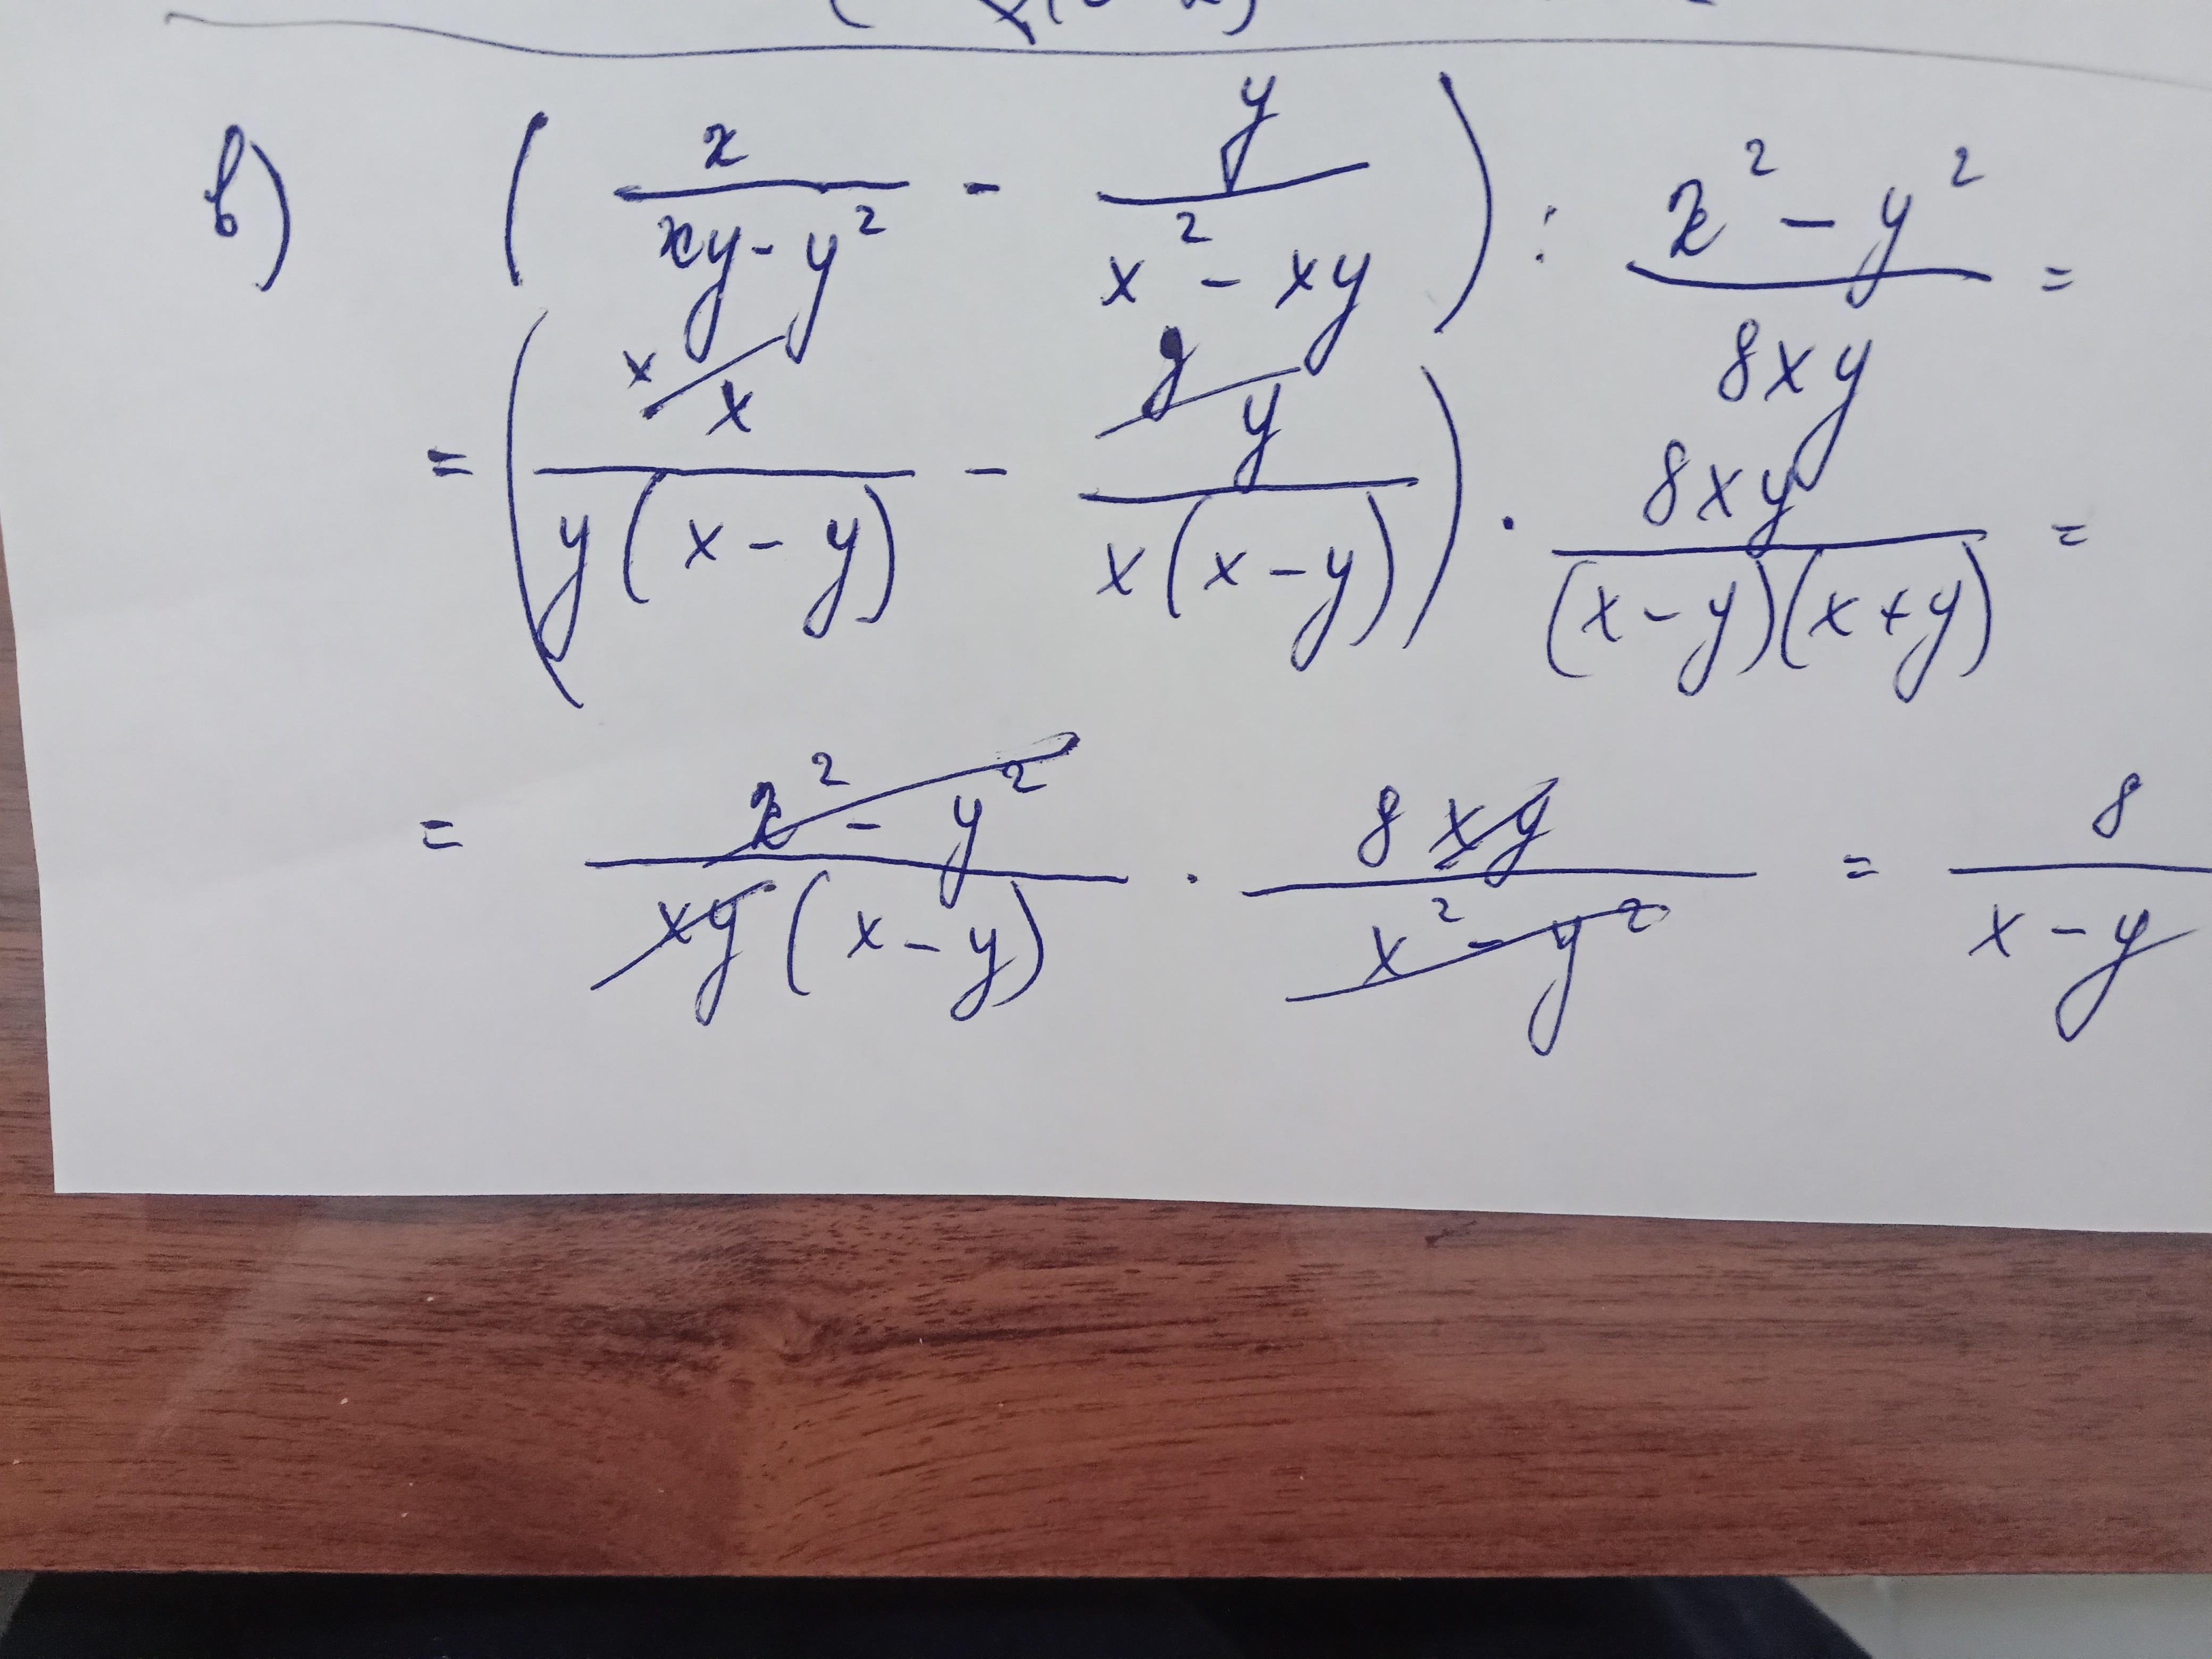 в) ( x / (xy - y²) - y / (x² - xy) ) : (x² - y²) / 8xy =
= ( ˣ⁄ x / y(x - y) - ʸ⁄ y / x(x - y) ) · 8xy / (x - y)(x + y) =
= (x² - y²) / xy(x - y) · 8xy / (x² - y²) = 8 / (x - y)